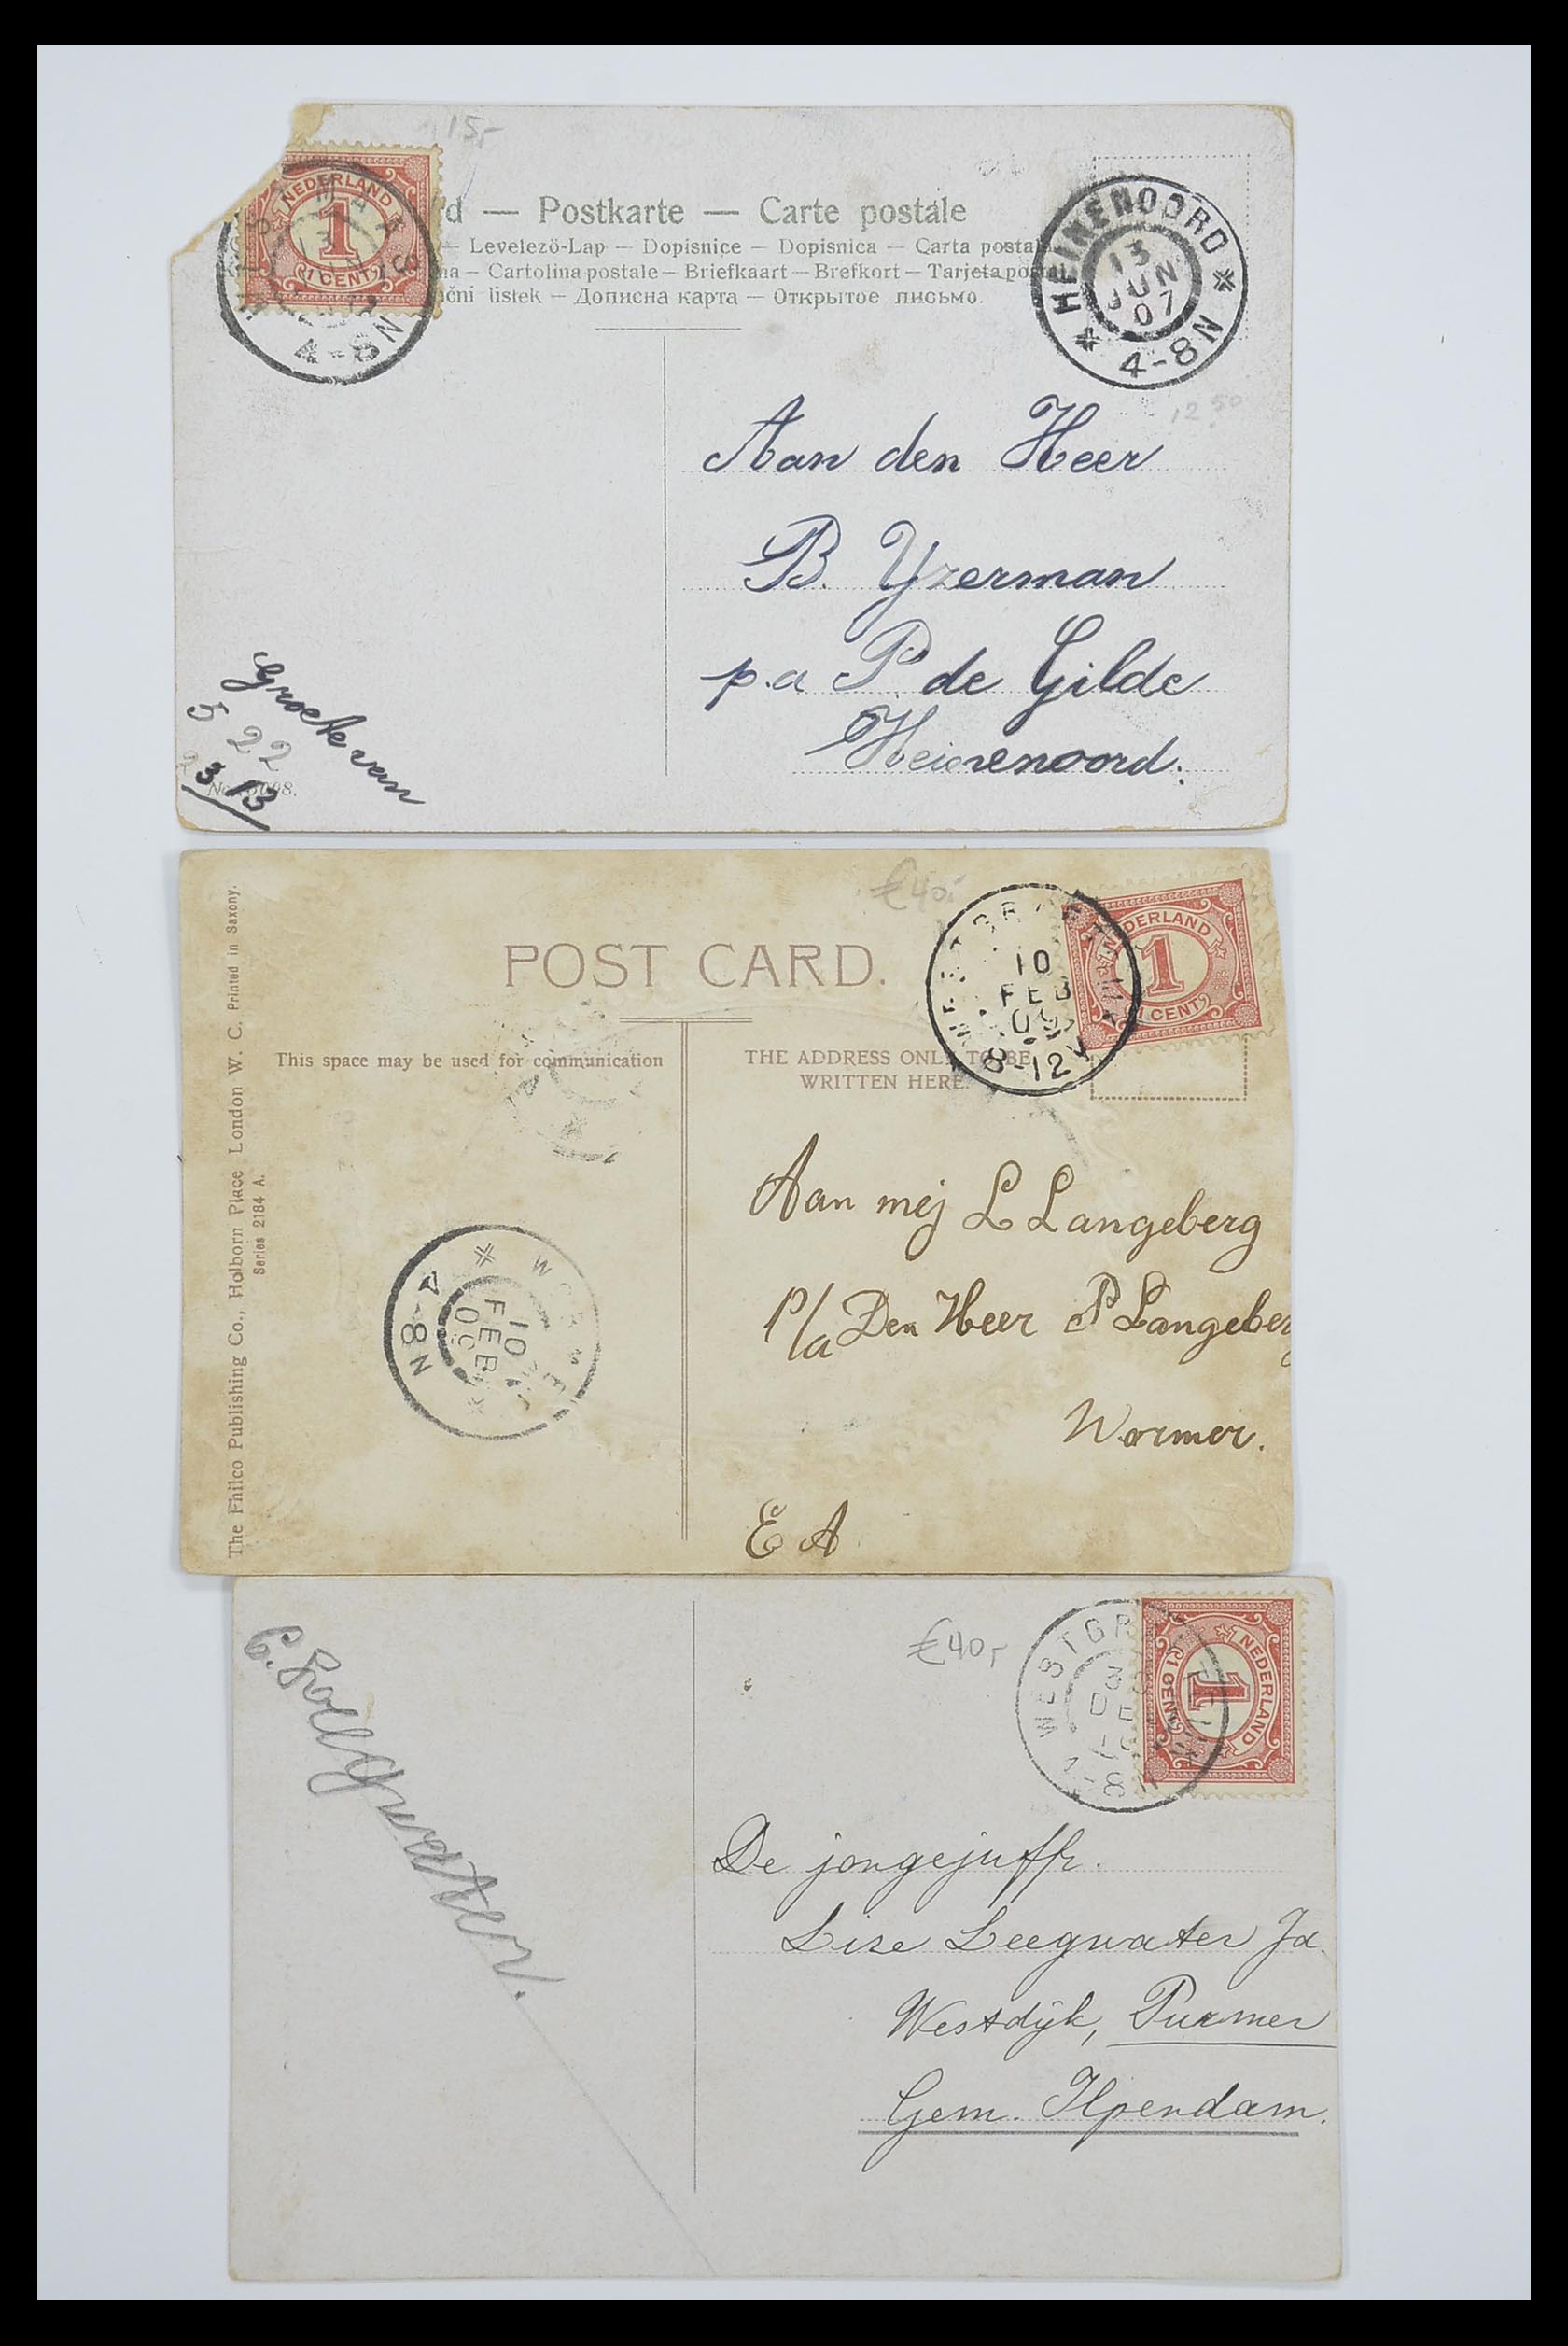 15,-
NEDERLAND
1
1 CENT
4-8N
rd — Postkarte — Carte postale
— Levelezö-Lap — Dopisnice — Dopisnica — Carta postal
na — Cartolina postale — Briefkaart — Brefkort — Tarjeta postal
čni listek — Дописна карта — Открытое письмо.
HEINENOORD
13
JUN
07
4-8N
12 50
Aan den Heer
B. Yzerman
p.a P. de Gilde
Heinenoord.
Groete van
5 22
3 13
€40,-
POST CARD.
10
FEB
09
8-12V
NEDERLAND
1
1 CENT
This space may be used for communication
THE ADDRESS ONLY TO BE
WRITTEN HERE.
The Philco Publishing Co., Holborn Place London W. C. Printed in Saxony.
Series 2184 A.
10
FEB
09
4-8N
Aan mej L Langeberg
P/a Den Heer P Langeberg
Wormer.
E A
€40,-
WESTGR
3
DE
NEDERLAND
1
1 CENT
C. Leegwater.
De jongejuffr.
Lize Leegwater Jd.
Westdijk, Purmer
Gem. Ilpendam.